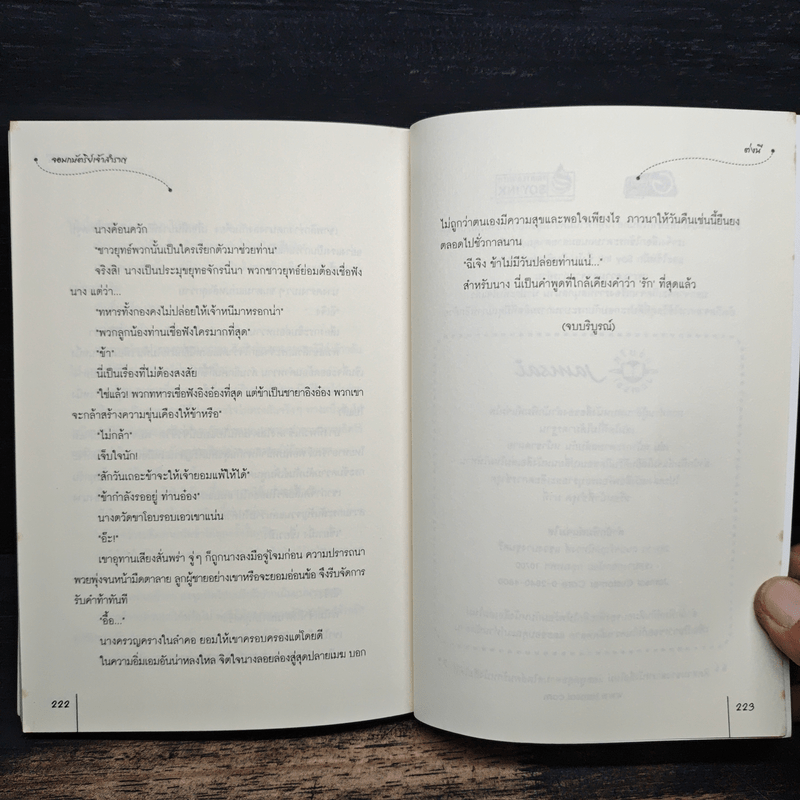 จอมกษัตริย์เจ้าสำราญ
นางค้อนควัก
"ชาวยุทธ์พวกนั้นเป็นใครเรียกตัวมาช่วยท่าน"
จริงสิ! นางเป็นประมุขยุทธจักรนี่นา พวกชาวยุทธ์ย่อมต้องเชื่อฟัง
นาง แต่ว่า...
"ทหารทั้งกองคงไม่ปล่อยให้เจ้าหนีมาหรอกน่า"
"พวกลูกน้องท่านเชื่อฟังใครมากที่สุด"
"ข้า"
นี่เป็นเรื่องที่ไม่ต้องสงสัย
"ใช่แล้ว! พวกทหารเชื่อฟังอิงอ๋องที่สุด แต่ข้าเป็นชายาอิงอ๋อง พวกเขา
จะกล้าสร้างความขุ่นเคืองให้ข้าหรือ"
"ไม่กล้า"
เจ็บใจนัก!
"สักวันเถอะข้าจะให้เจ้ายอมแพ้ให้ได้"
"ข้ากำลังรออยู่ ท่านอ๋อง"
นางตวัดขาโอบรอบเอวเขาแน่น
"อ๊ะ!"
เขาอุทานเสียงสั่นพร่า จู่ๆ ก็ถูกนางลงมือจู่โจมก่อน ความปรารถนา
พวยพุ่งจนหน้ามืดตาลาย ลูกผู้ชายอย่างเขาหรือจะยอมอ่อนข้อ จึงรีบจัดการ
รับคำท้าทันที
"อื้อ..."
นางครวญครางในลำคอ ยอมให้เขาครอบครองแต่โดยดี
ในความอิ่มเอมอันน่าหลงใหล จิตใจนางลอยล่องสู่สุดปลายเมฆ บอก
222
ต่งนี
ไม่ถูกว่าตนเองมีความสุขและพอใจเพียงไร ภาวนาให้วันคืนเช่นนี้ยืนยง
ตลอดไปชั่วกาลนาน
"ฉีเจิง ข้าไม่มีวันปล่อยท่านแน่..."
สำหรับนาง นี่เป็นคำพูดที่ใกล้เคียงคำว่า 'รัก' ที่สุดแล้ว
(จบบริบูรณ์)
223